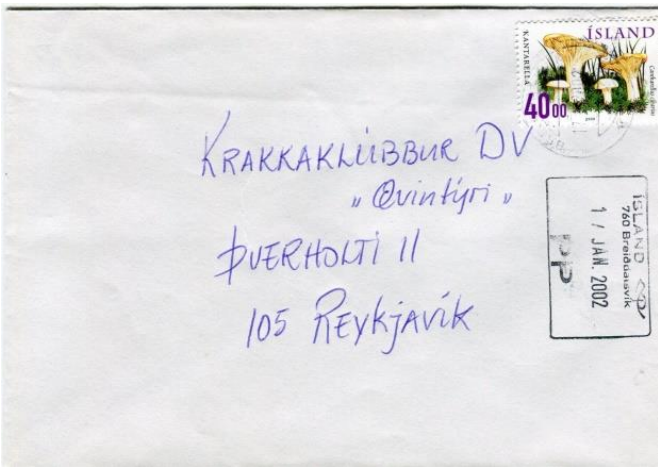 ÍSLAND
KANTARELLA
40 00
KRAKKAKLÚBBUR DV
„ Ævintýri „
ÞVERHOLTI 11
105 REYKJAVÍK
ÍSLAND
760 Breiðdalsvík
1 / JAN. 2002
pp